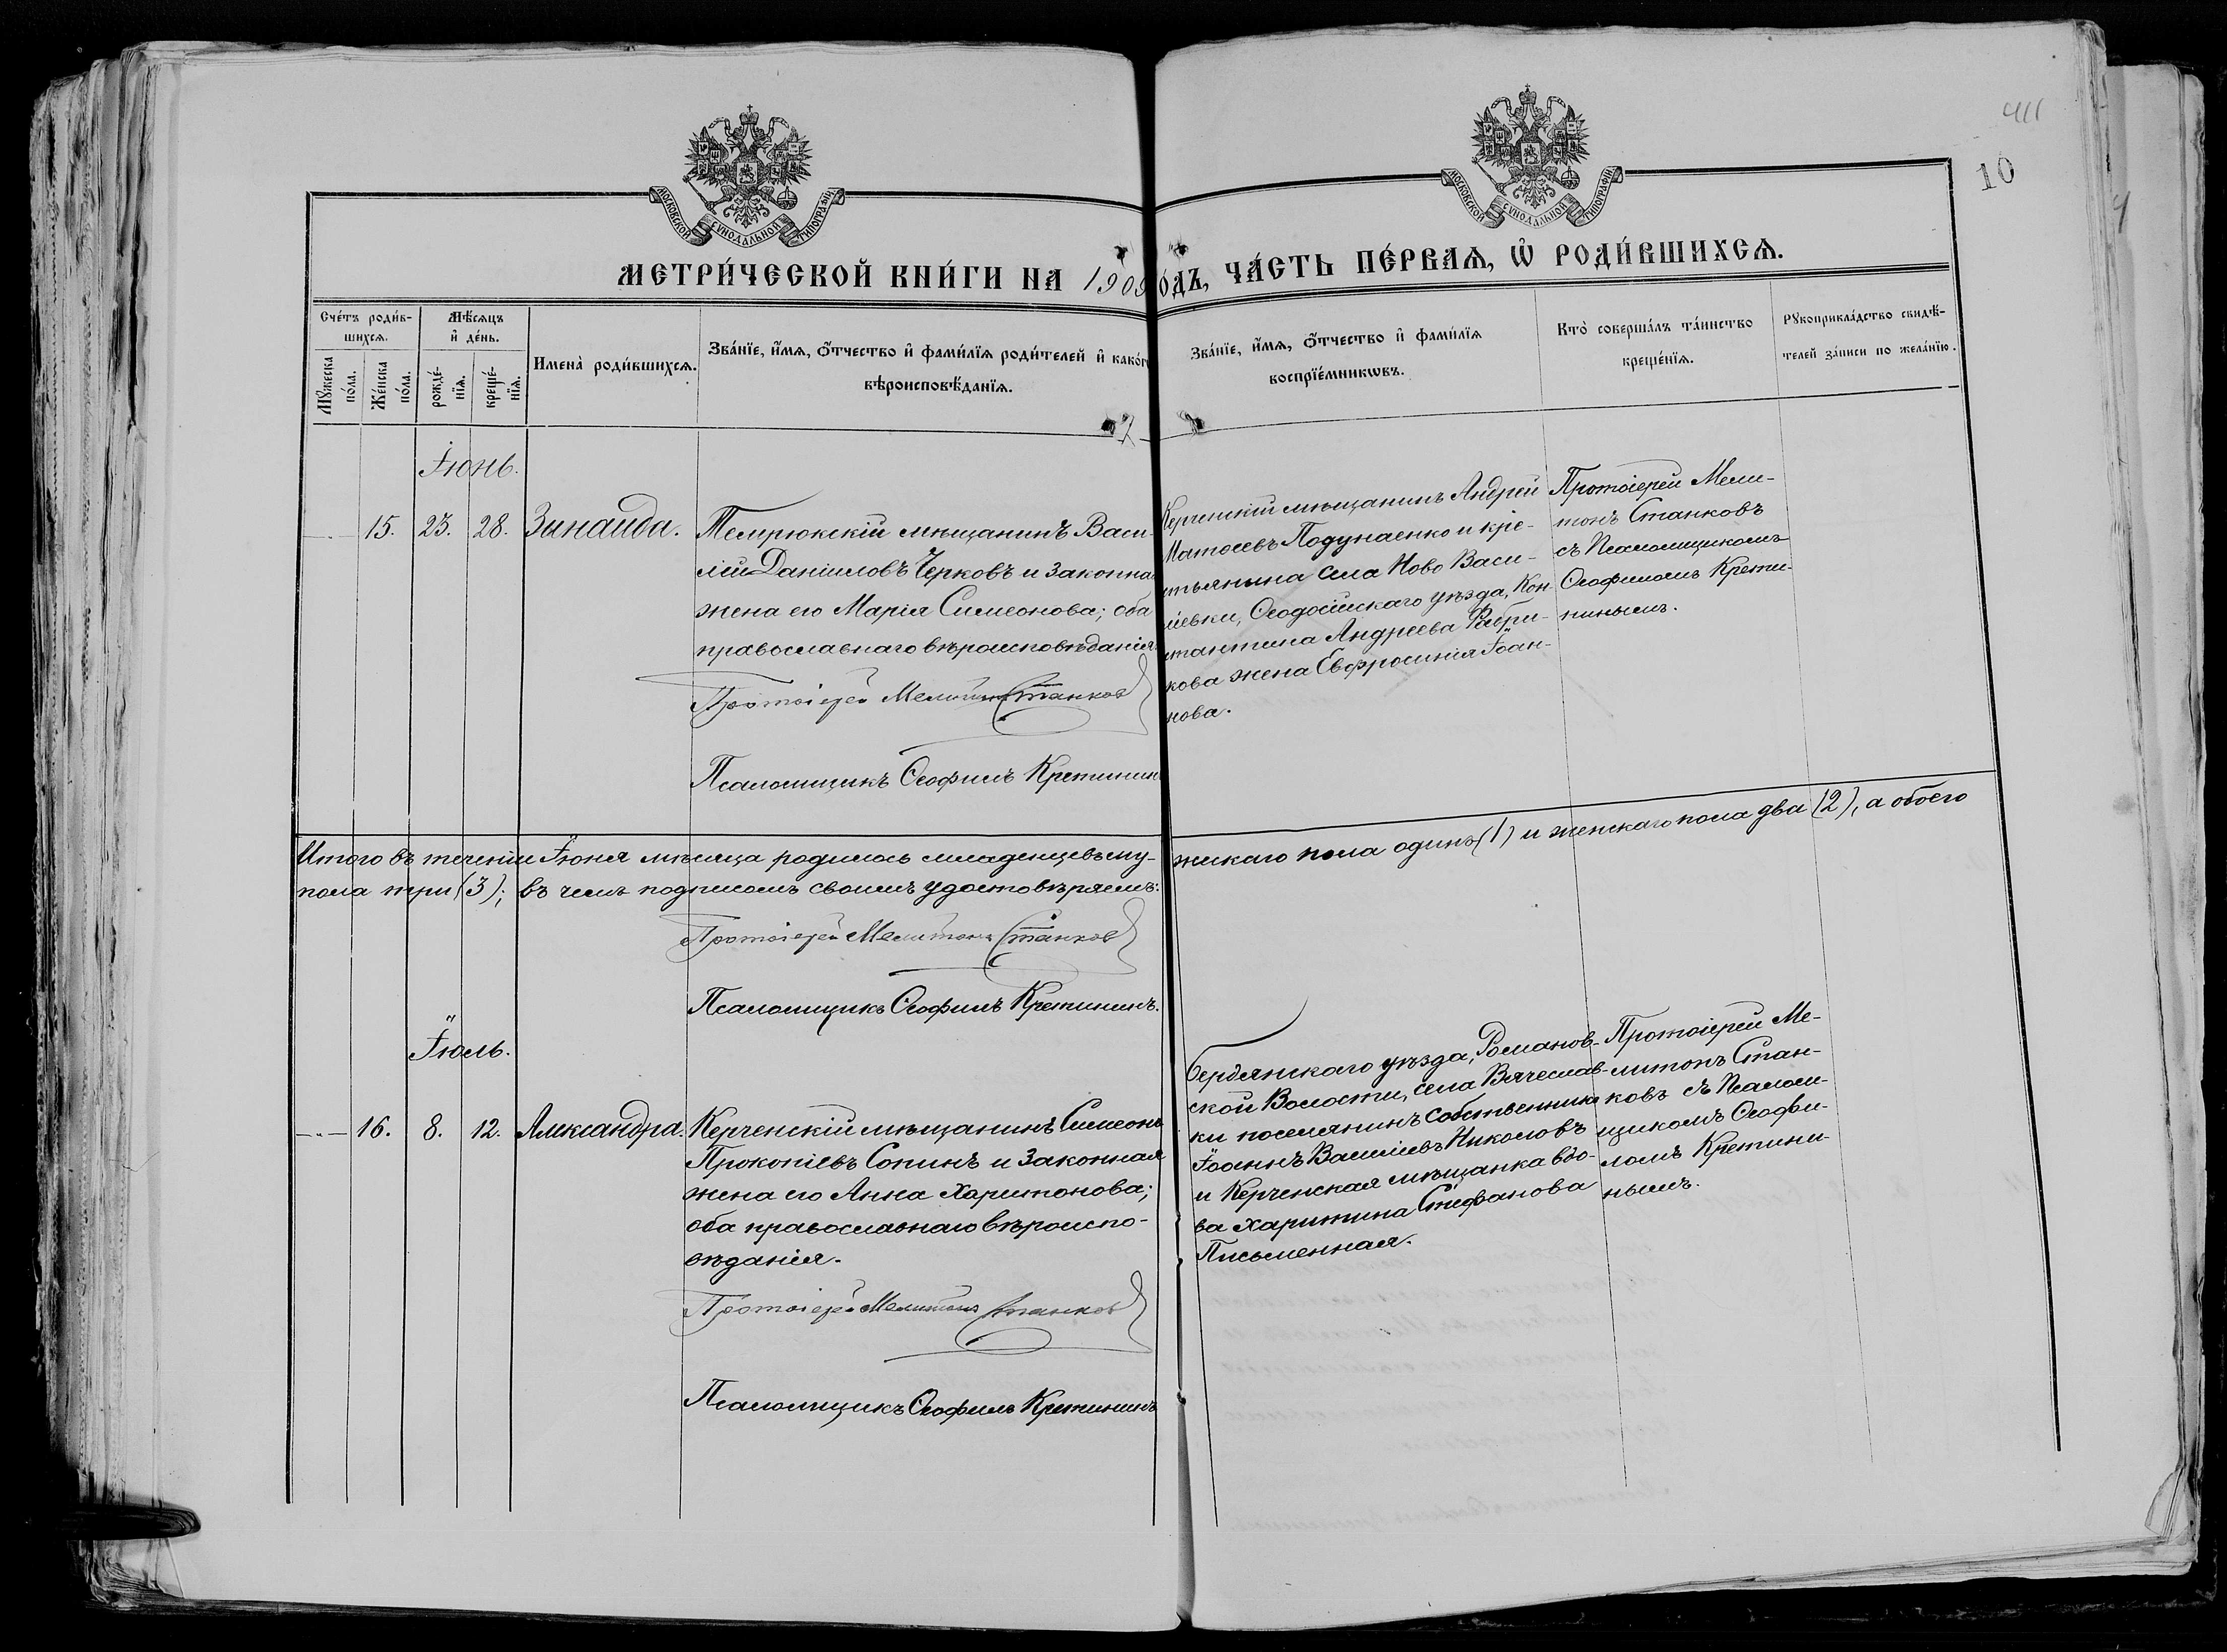 411
10
МОСКОВСКОЙ СѴНОДАЛЬНОЙ ТИПОГРАФІИ
МОСКОВСКОЙ СѴНОДАЛЬНОЙ ТИПОГРАФІИ
МЕТРИ́ЧЕСКОЙ КНИ́ГИ НА 1909 ГО́ДЪ, ЧА́СТЬ ПЕ́РВАѦ, Ѡ҆ РОДИ́ВШИХСѦ.
Сче́тъ роди́в-
шихсѧ.
Мꙋ́жеска
по́ла.
Же́нска
по́ла.
Мѣ́сѧцъ
и҆ де́нь.
рожде́-
нїѧ.
креще́-
нїѧ.
Имена̀ роди́вшихсѧ.
Зва́нїе, и҆́мѧ, ѻ҆́тчество и҆ фами́лїѧ роди́телей и҆ како́гѡ
вѣроисповѣ́данїѧ.
Зва́нїе, и҆́мѧ, ѻ҆́тчество и҆ фами́лїѧ
воспрїе́мникѡвъ.
Кто̀ соверша́лъ та́инство
креще́нїѧ.
Рꙋкоприкла́дство свидѣ́-
телей за́писи по жела́нїю.
Іюнь.
15. 23. 28. Зинаида.
Темрюкскій мѣщанинъ Васи-
лій Даніиловъ Черковъ и законная
жена его Марія Симеонова; оба
православнаго вѣроисповѣданія.
Протоіерей Мелитонъ Станковъ
Псаломщикъ Ѳеофилъ Кретининъ
Керченскій мѣщанинъ Андрей
Матѳеевъ Подунаенко и кре-
стьянина села Ново Васи-
льевки, Ѳеодосійскаго уѣзда, Кон-
стантина Андреева
кова жена Евфросинія Іоан-
нова.
Протоіерей Мели-
тонъ Станковъ
съ Псаломщикомъ
Ѳеофиломъ Крети-
нинымъ.
Итого въ теченіи Іюня мѣсяца родилось младенцевъ му-
жскаго пола одинъ (1) и женскаго пола два (2), а обоего
пола три (3); въ чемъ подписомъ своимъ удостовѣряемъ:
Протоіерей Мелитонъ Станковъ
Псаломщикъ Ѳеофилъ Кретининъ.
Іюль.
16. 8. 12. Александра.
Керченскій мѣщанинъ Симеонъ
Прокопіевъ Сопинъ и законная
жена его Анна Харитонова;
оба православнаго вѣроиспо-
вѣданія.
Протоіерей Мелитонъ Станковъ
Псаломщикъ Ѳеофилъ Кретининъ
Бердянскаго уѣзда, Романов-
ской Волости, села Вячеслав-
ки поселянинъ собственникъ
Іоаннъ Василіевъ Николовъ
и Керченская мѣщанка вдо-
ва Харитина Стефанова
Письменная.
Протоіерей Ме-
литонъ Стан-
ковъ съ Псалом-
щикомъ Ѳеофи-
ломъ Кретини-
нымъ.